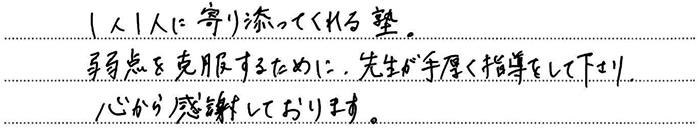 1人1人に寄り添ってくれる塾。
弱点を克服するために、先生が手厚く指導をして下さり、
心から感謝しております。